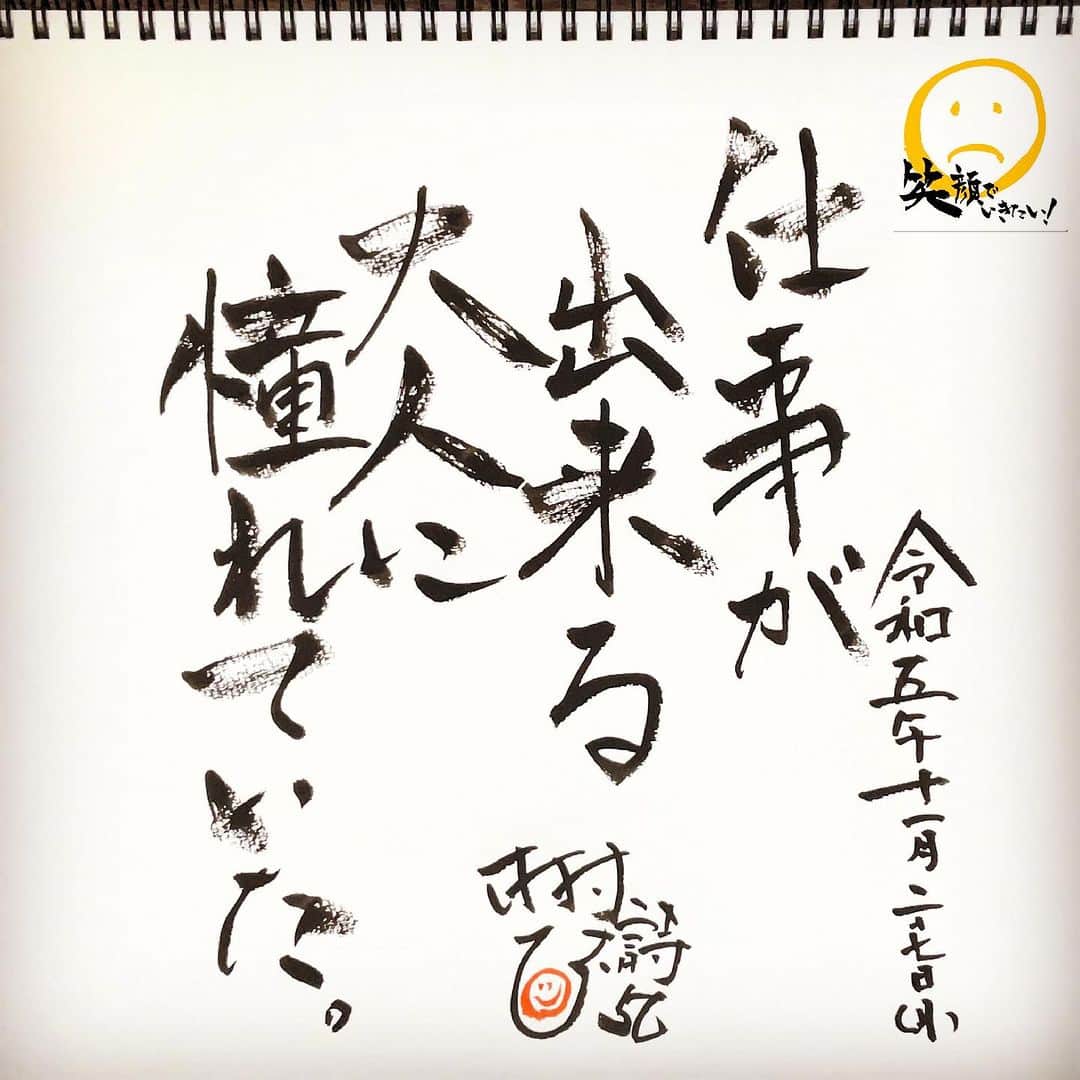 笑顔で
いきたい!
令和五年十一月二十七日
仕事が
出来る
大人に
憧れていた。